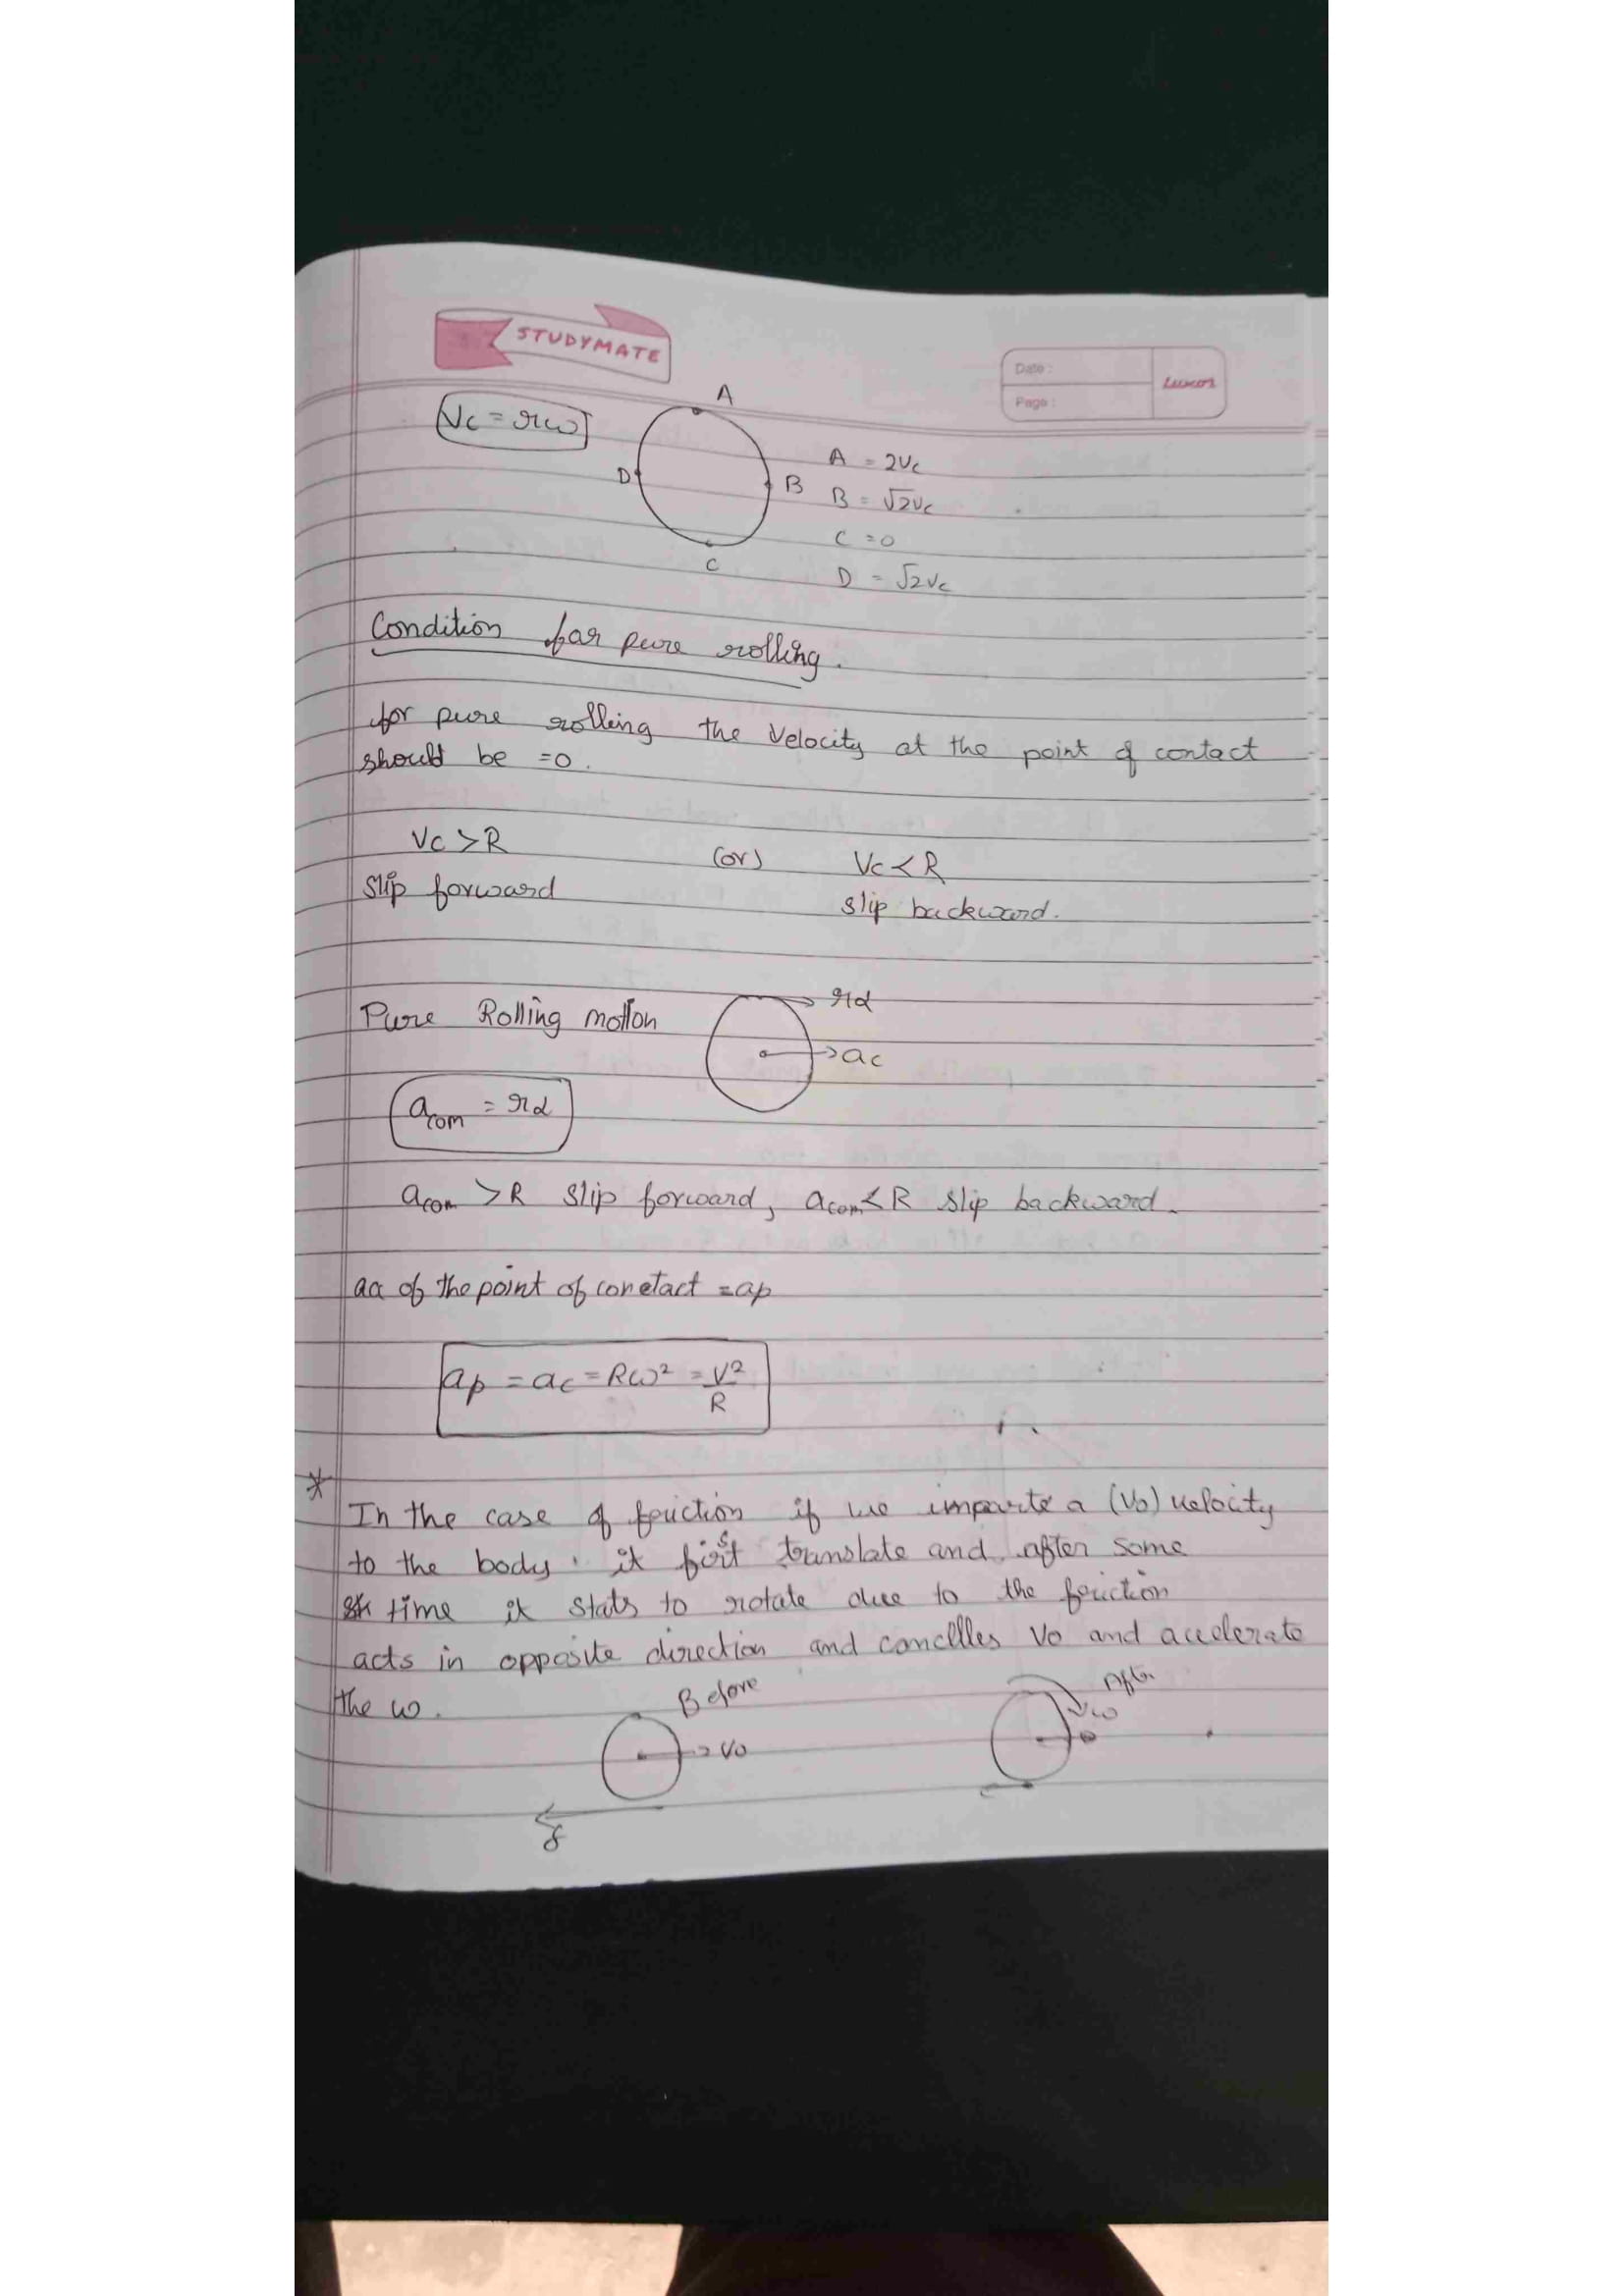 STUDYMATE
Date :
Page :
Luxor
Vc = rω
A
D
B
C
A = 2Vc
B = √2Vc
C = 0
D = √2Vc
Condition for pure rolling.
for pure rolling the Velocity at the point of contact
should be = 0.
Vc > R (or) Vc < R
Slip forward slip backward.
Pure Rolling motion
rα
ac
acom = rα
acom > R slip forward, acom < R slip backward.
aa of the point of conctact = ap
ap = ac = Rω² = V²/R
* In the case of friction if we imparte a (Vo) velocity
to the body. it first translate and after some
time it stats to rotate due to the friction
acts in opposite direction and cancllles Vo and accelerate
the ω.
Before
Vo
f
After